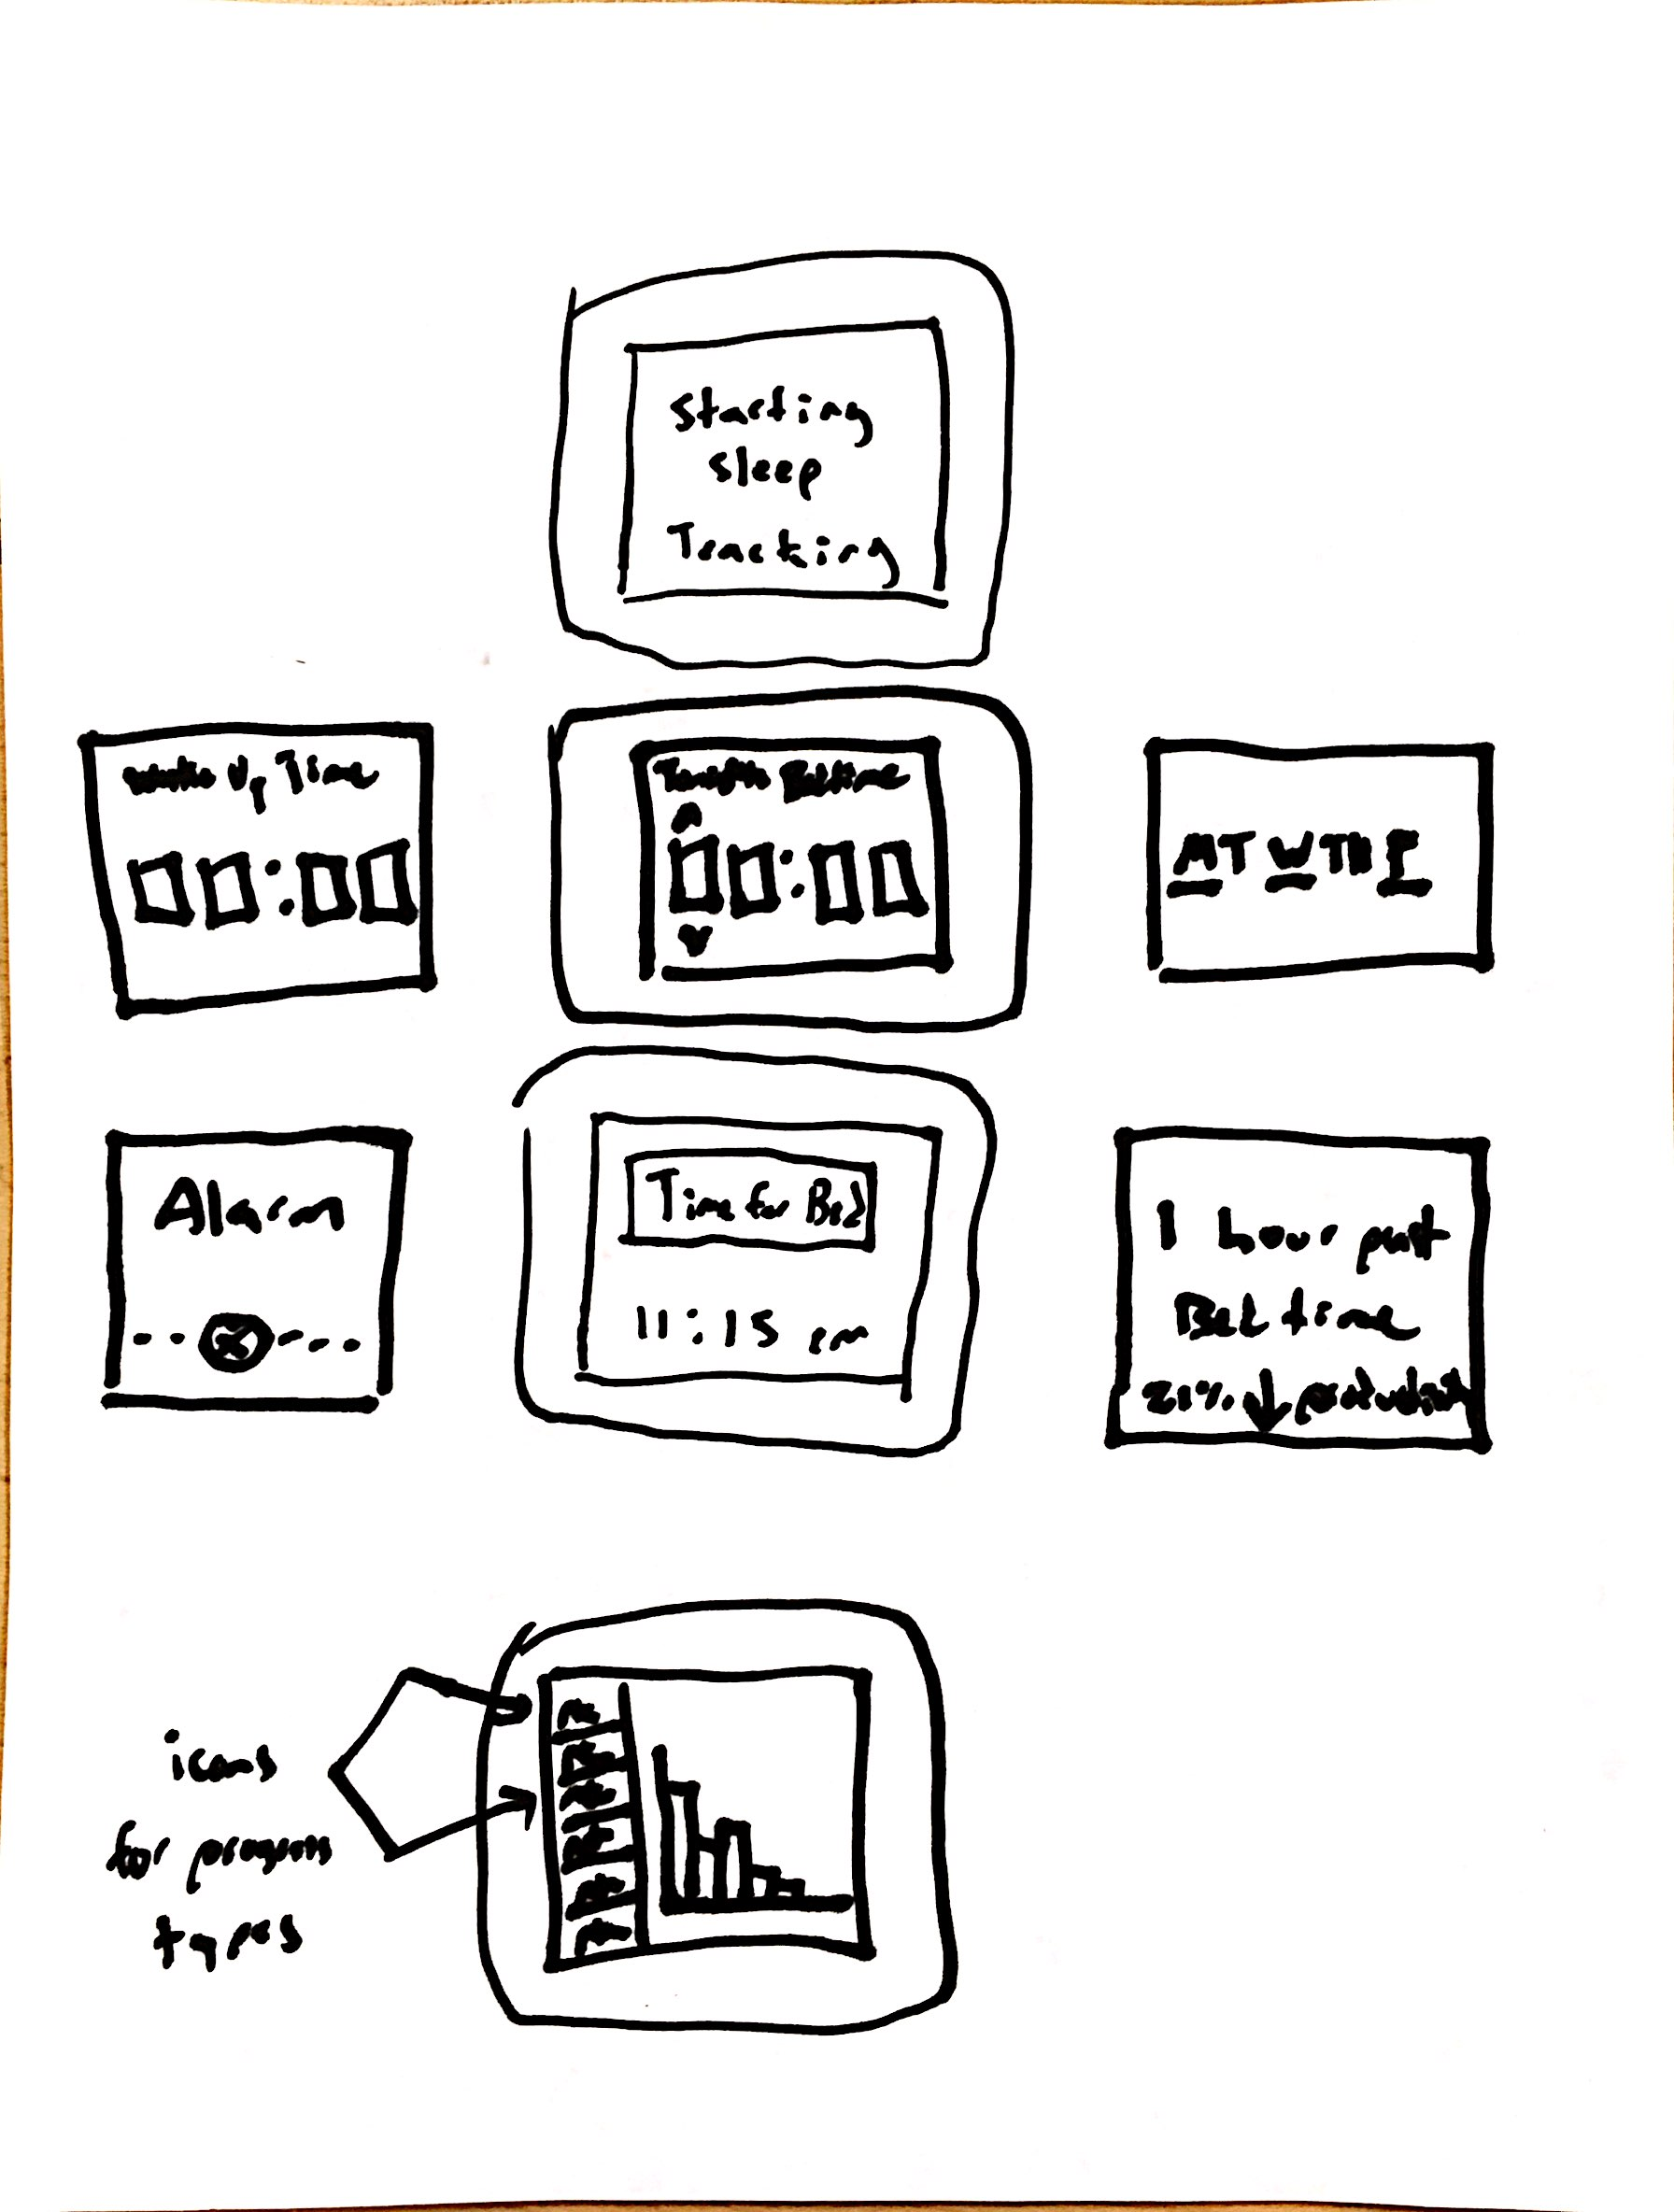 Starting
sleep
Tracking
Wake Up Time
00:00
Tonights Bedtime
00:00
M T W Th F
Alarm
Time for Bed
11:15 pm
1 hour past
Bed time
21% ↓ productivity
icons
for program
types